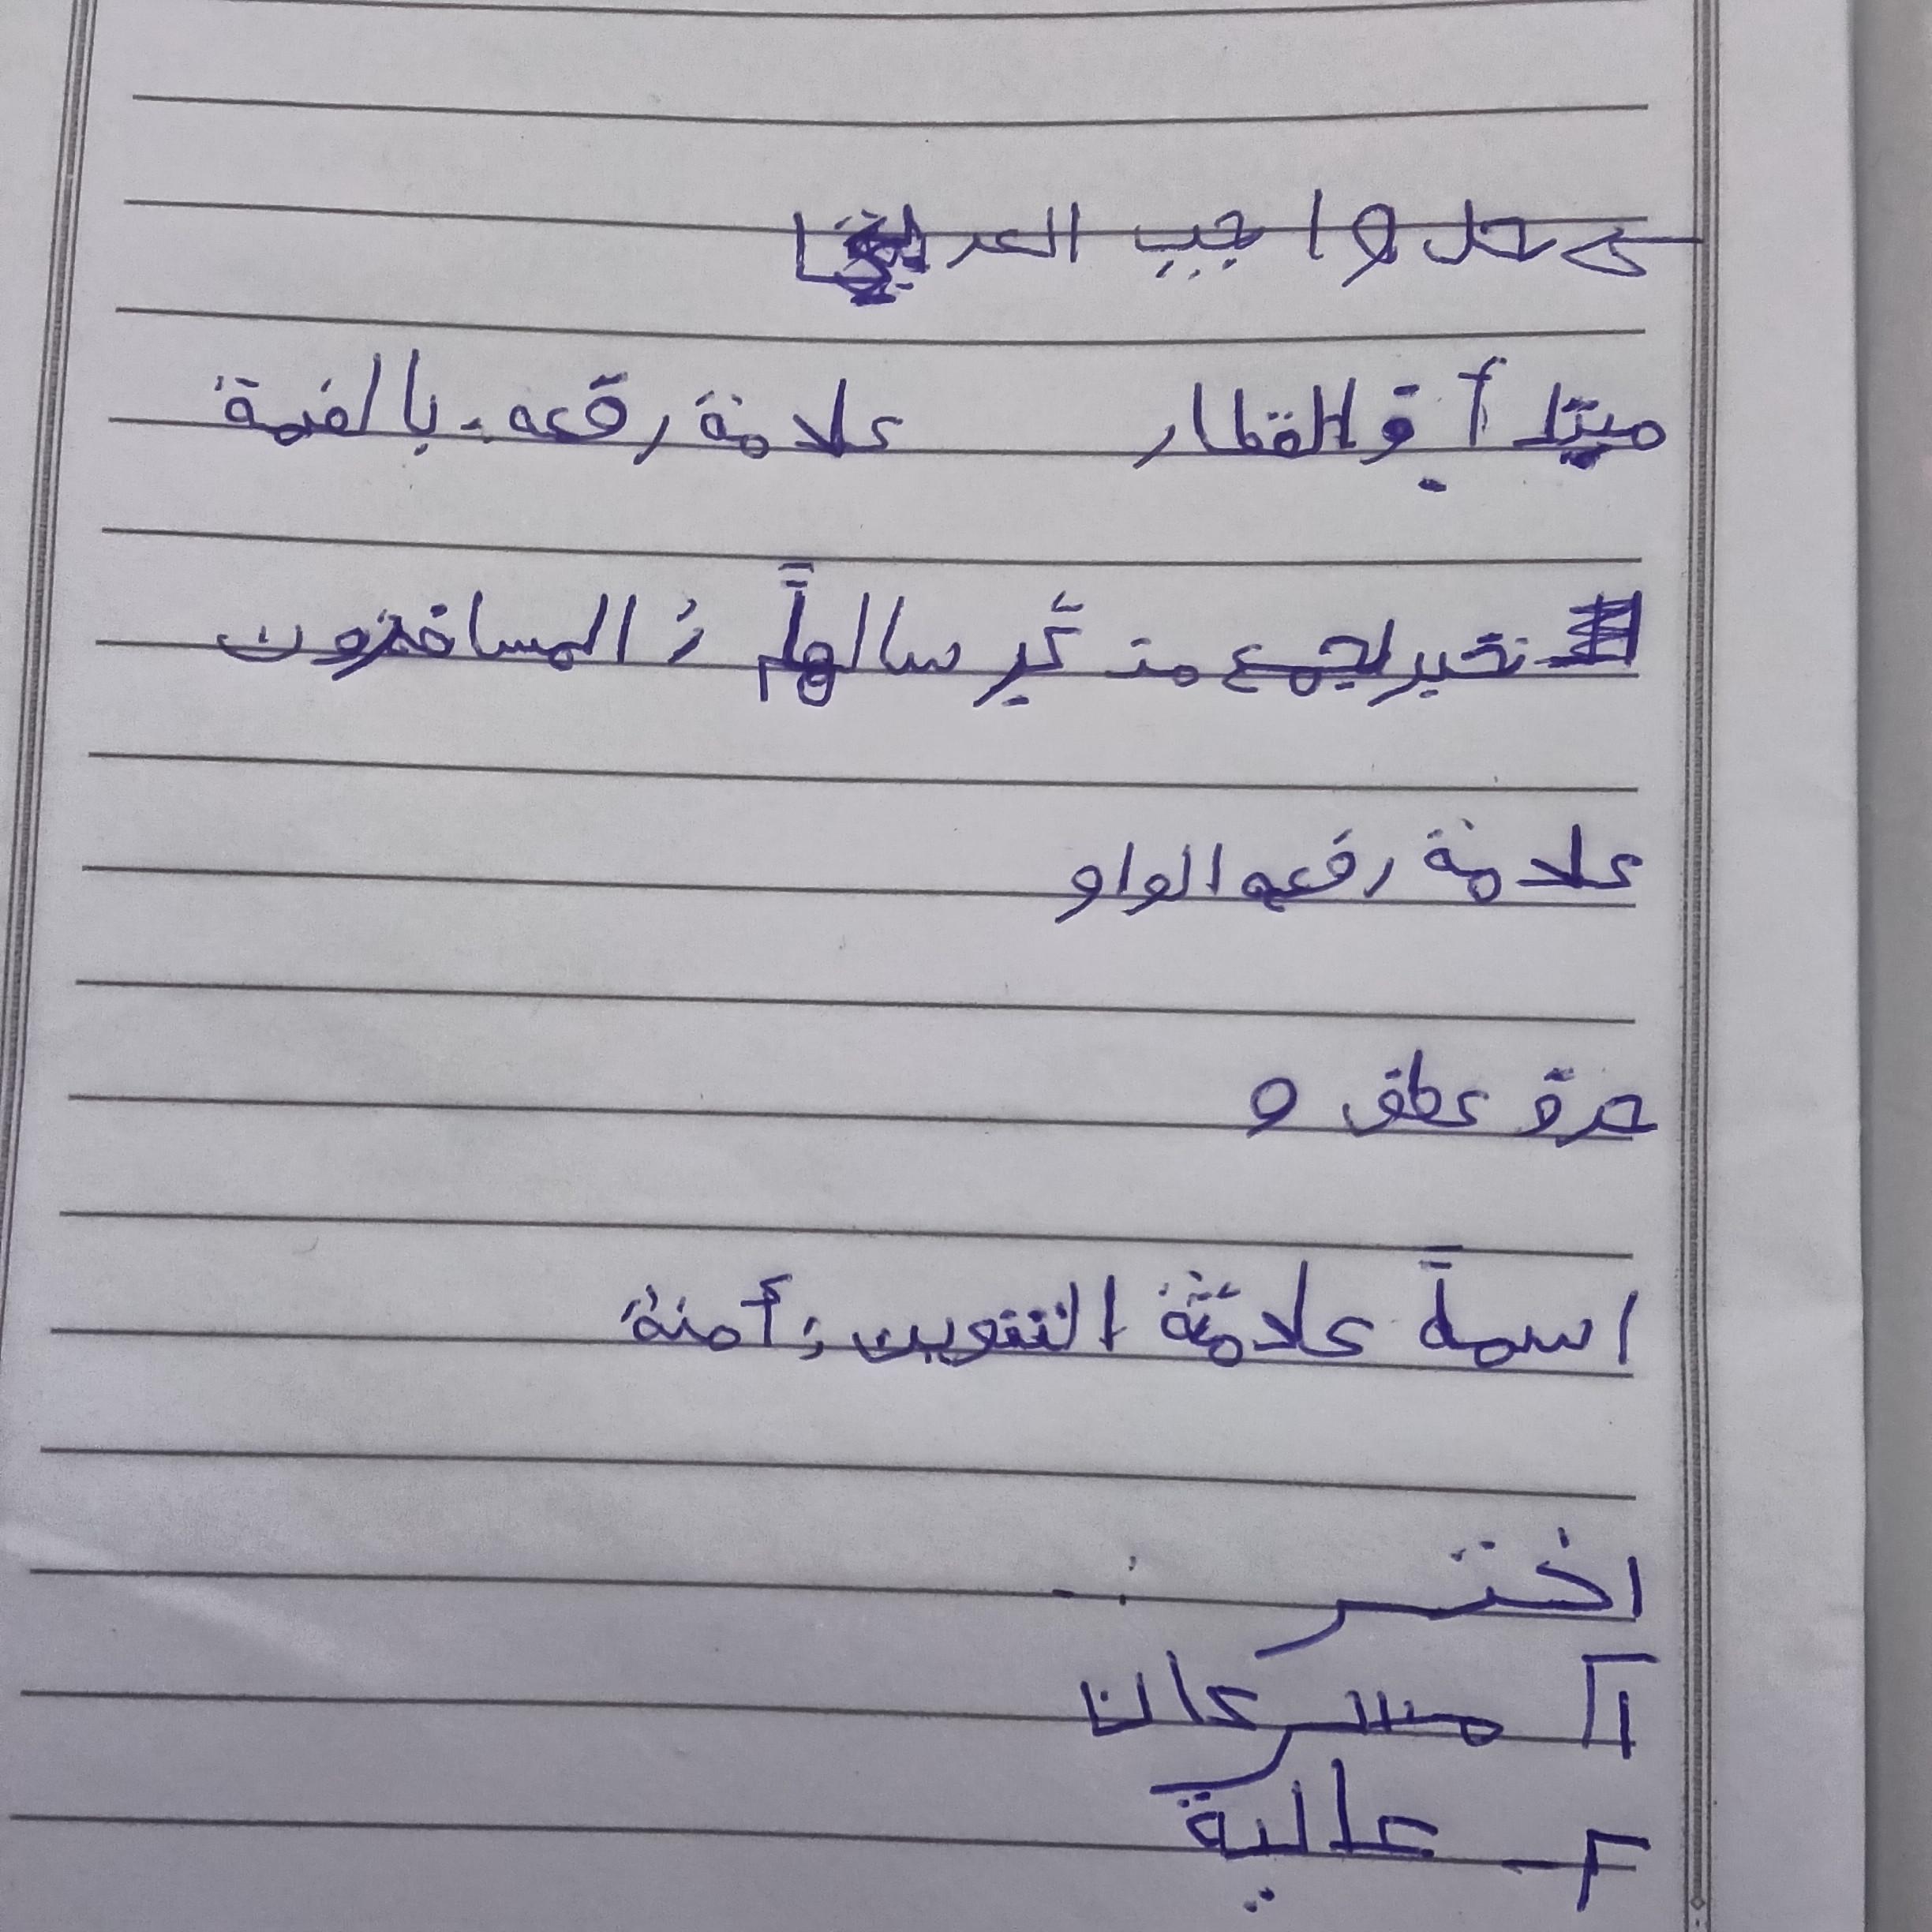 حل واجب العربي
مبتدأ القطار علامة رفعه بالضمة
خبر لجمع مذكر سالماً : المسافرون
علامة رفعه الواو
حرف عطف و
اسماً علامتة التنوين : أمنة
اختر :-
١ مسرعان
٢- عالية